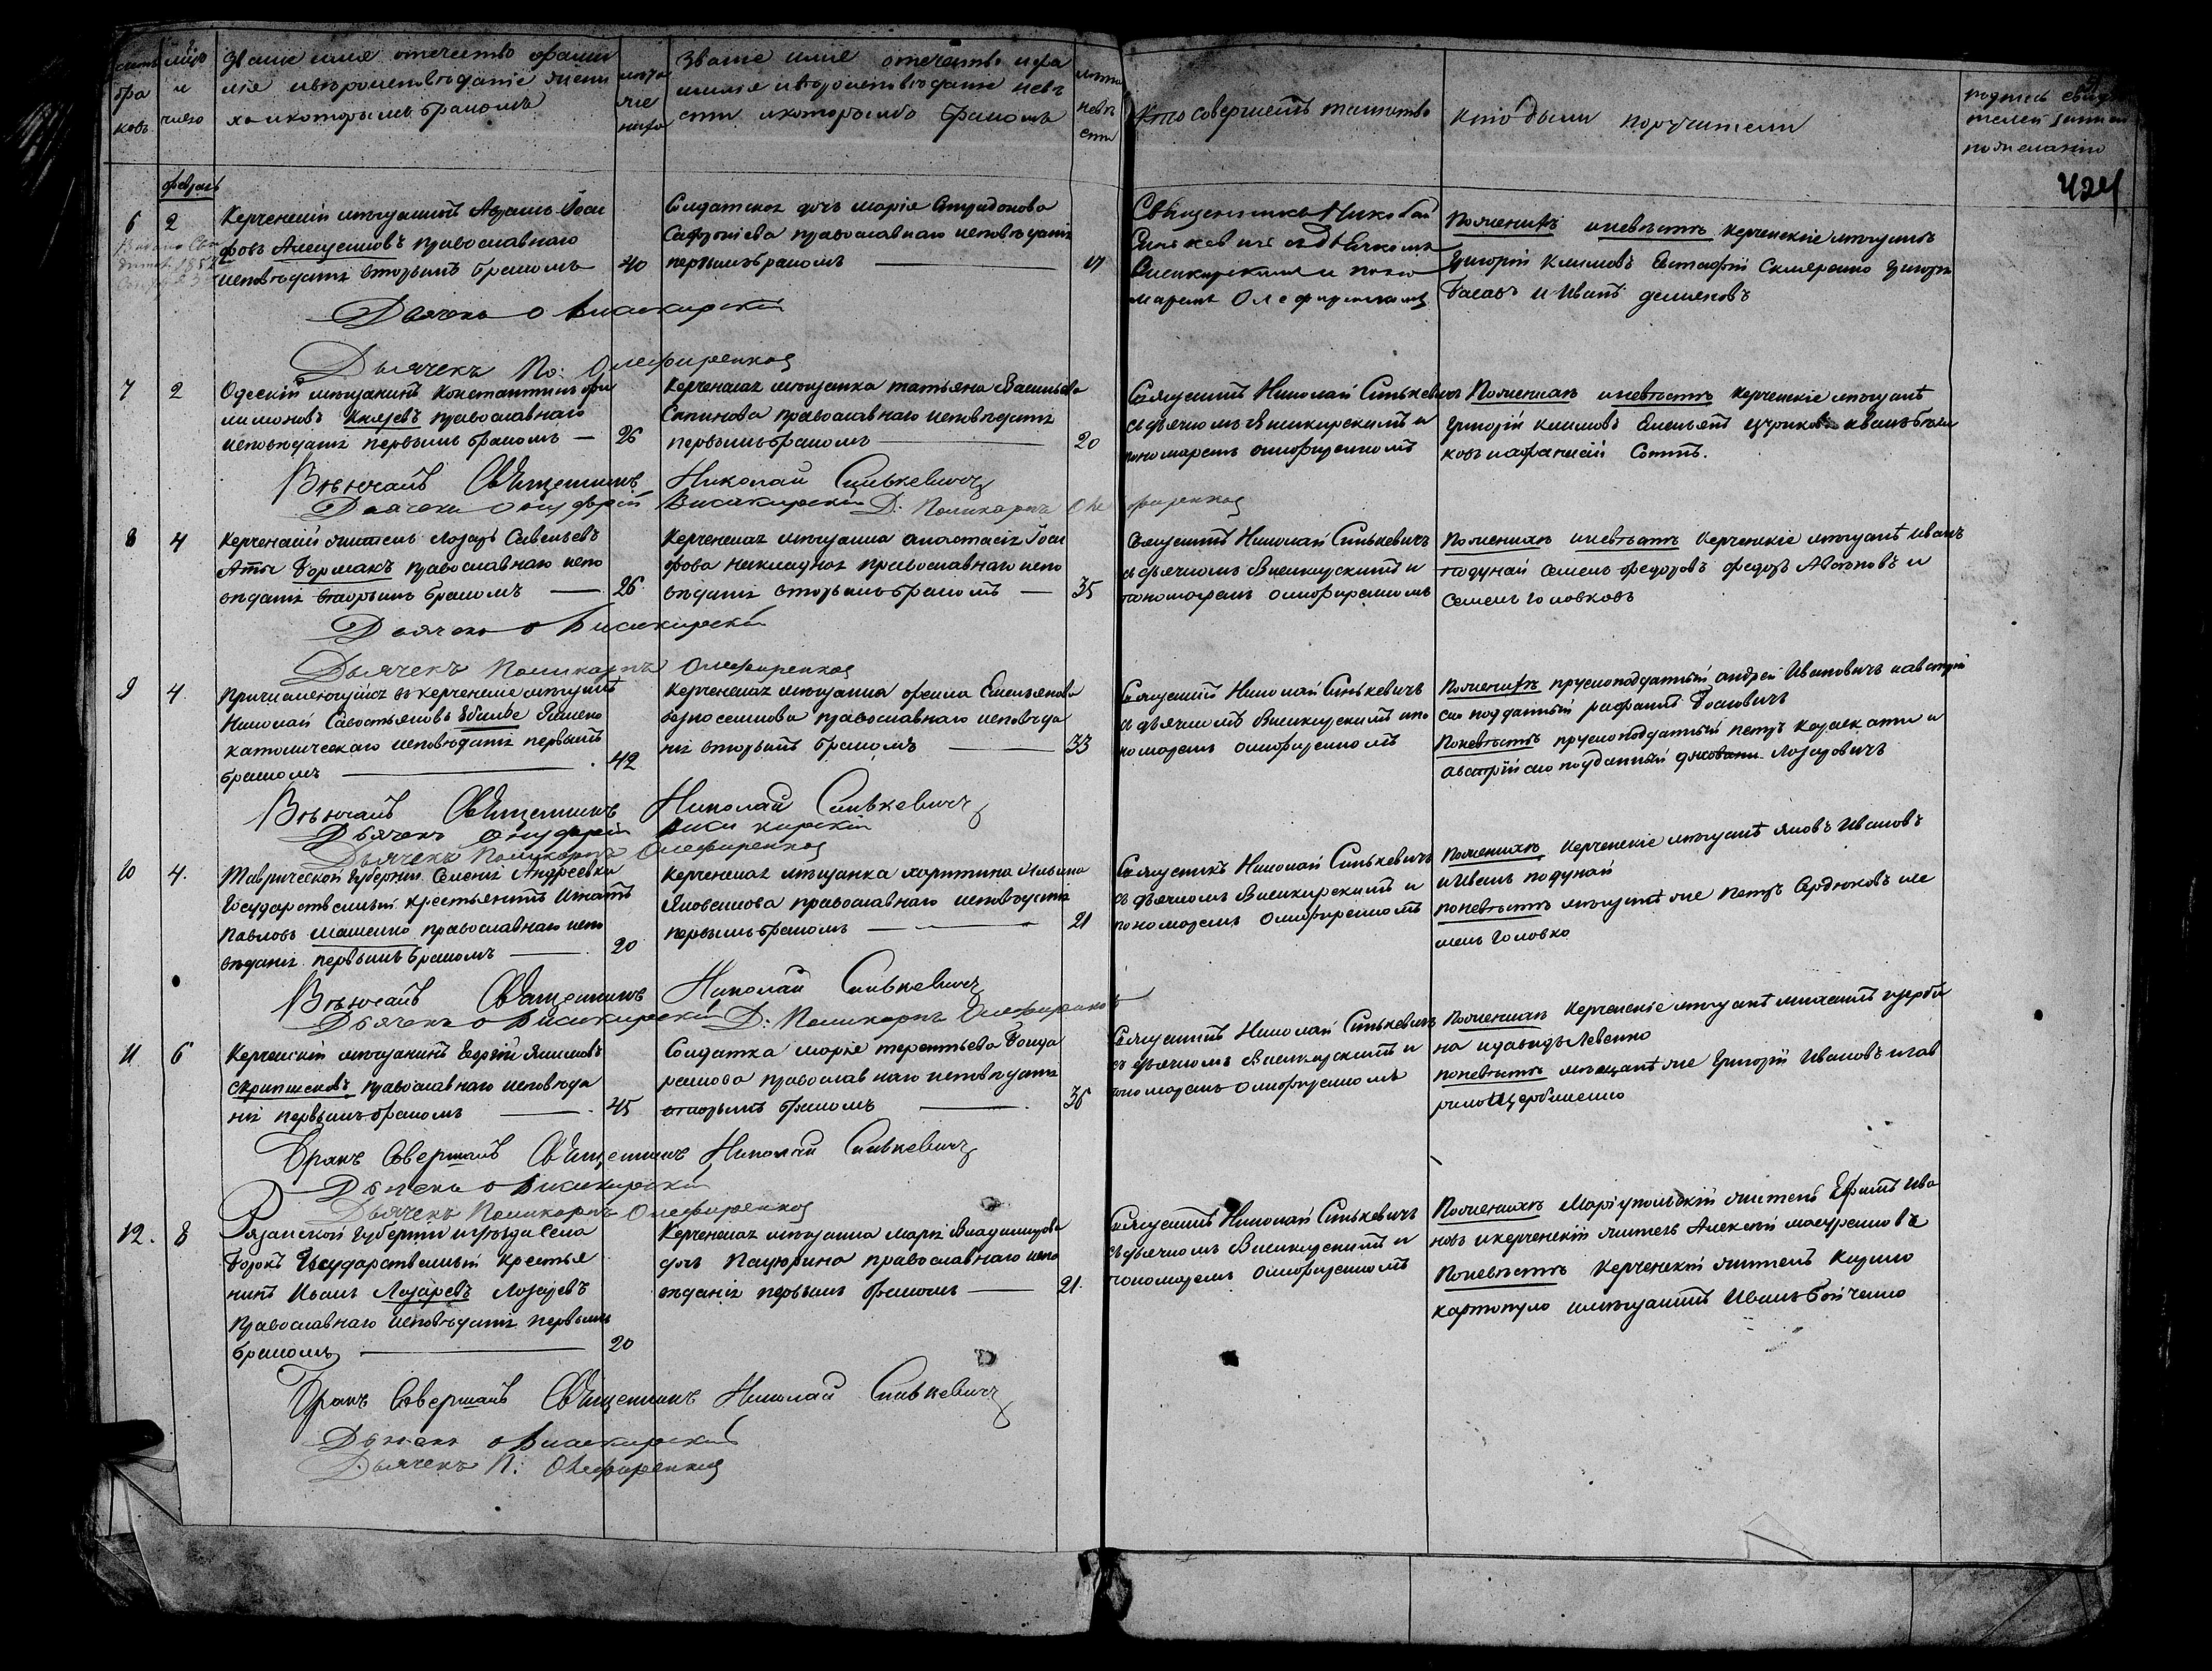 Счетъ бра ковъ
м-цъ и число
Званіе имя отечество фами
лія и вѣроисповѣданіе жени
ха и которымъ бракомъ
лѣта же ниха
Званіе имя отечество и фа
милія и вѣроисповѣданіе невѣ
сты и которымъ бракомъ
лѣта невѣ сты
Кто совершалъ таинство
Кто были поручители
подпись свидѣ
телей записи
по желанію
424
февраль
6
2
Керченскій мѣщанинъ Абрамъ Іоси
фовъ православнаго
исповѣданія вторымъ бракомъ
40
Солдатская дочь Марія Спиридонова
Сафроніева православнаго исповѣданія
первымъ бракомъ
17
Священникъ Николай
Синькевичъ съ дьячкомъ
Висикирскимъ и поно
маремъ Олефиренкомъ
По женихѣ и невѣстѣ керченскіе мѣщане
Григорій Климовъ Евстафій Скляренко Григорій
и Иванъ
Дьячекъ О Висикирскій
Дьячекъ По: Олефиренков
7
2
Одескій мѣщанинъ Константинъ Фи
лимоновъ Князевъ православнаго
исповѣданія первымъ бракомъ
26
Керченская мѣщанка Татьяна Васильева
православнаго исповѣданія
первымъ бракомъ
20
Священникъ Николай Синькевичъ
съ дьячкомъ Висикирскимъ и
пономаремъ Олефиренкомъ
По женихѣ и невѣстѣ керченскіе мѣщане
Григорій Климовъ Емельянъ
ковъ и Афанасій
Вѣнчалъ Священникъ Николай Синькевичъ
Дьячекъ Онуфрій Висикирскій Д. Поликарпъ Олефиренков
8
4
Керченскій житель Лазарь Савельевъ
православнаго испо
вѣданія вторымъ бракомъ
26
Керченская мѣщанка Анастасія Іоси
фова православнаго испо
вѣданія вторымъ бракомъ
35
Священникъ Николай Синькевичъ
съ дьячкомъ Висикирскимъ и
пономаремъ Олефиренкомъ
По женихѣ и невѣстѣ керченскіе мѣщане Иванъ
Подунай Семенъ Федоровъ Федоръ и
Семенъ Головковъ
Дьячекъ О Висикирскій
Дьячекъ Поликарпъ Олефиренков
9
4.
Причисляющійся въ керченскіе мѣщане
Николай Савостьяновъ Римско
католическаго исповѣданія первымъ
бракомъ
42
Керченская мѣщанка Емельянова
православнаго исповѣда
нія вторымъ бракомъ
33
Священникъ Николай Синькевичъ
съ дьячкомъ Висикирскимъ и по
номаремъ Олефиренкомъ
По женихѣ прускоподданный Андрей Ивановичъ и австрій
ско подданный
По невѣстѣ прускоподданный Петръ и
австрійско подданный Лазаровичъ
Вѣнчалъ Священникъ Николай Синькевичъ
Дьячекъ Онуфрій Висикирскій
Дьячекъ Поликарпъ Олефиренков
10
4.
Таврической Губерніи Селенія Андреевки
Государственный крестьянинъ Игнатъ
Павловъ Машенко православнаго испо
вѣданія первымъ бракомъ
20
Керченская мѣщанка Харитина Ильина
Яновскова православнаго исповѣданія
первымъ бракомъ
21
Священникъ Николай Синькевичъ
съ дьячкомъ Висикирскимъ и
пономаремъ Олефиренкомъ
По женихѣ Керченскіе мѣщане Яковъ Ивановъ
и Иванъ Подунай
По невѣстѣ мѣщане же Петръ Сердюковъ Се
менъ Головко
Вѣнчалъ Священникъ Николай Синькевичъ
Дьячекъ О Висикирскій Д: Поликарпъ Олефиренков
11
6
Керченскій мѣщанинъ Георгій Якимовъ
Скрипченковъ православнаго исповѣда
нія первымъ бракомъ
45
Солдатка Марія Терентьева Бонда
ренкова православнаго исповѣданія
вторымъ бракомъ
36
Священникъ Николай Синькевичъ
съ дьячкомъ Висикирскимъ и
пономаремъ Олефиренкомъ
По женихѣ Керченскіе мѣщане Михаилъ Щерби
на и Давидъ Левенко
По невѣстѣ мѣщане же Григорій Ивановъ и Гав
рило Щербиненко
Бракъ Совершалъ Священникъ Николай Синькевичъ
Дьячекъ О Висикирскій
Дьячекъ Поликарпъ Олефиренков
12.
8
Рязанской Губерніи и уѣзда Села
Борокъ Государственный Крестья
нинъ Иванъ Лазаревъ Лазаревъ
православнаго исповѣданія первымъ
бракомъ
20
Керченская мѣщанка Марія Владимірова
дочь Пацюрина православнаго испо
вѣданія первымъ бракомъ
21.
Священникъ Николай Синькевичъ
съ дьячкомъ Висикирскимъ и
пономаремъ Олефиренкомъ
По женихѣ Маріупольскій житель Ефимъ Ива
новъ и керченскій житель Алексѣй
По невѣстѣ Керченскій житель Кузма
Картопуло и мѣщанинъ Иванъ Бойченко
Бракъ Совершалъ Священникъ Николай Синькевичъ
Дьячекъ О Висикирскій
Дьячекъ П: Олефиренков